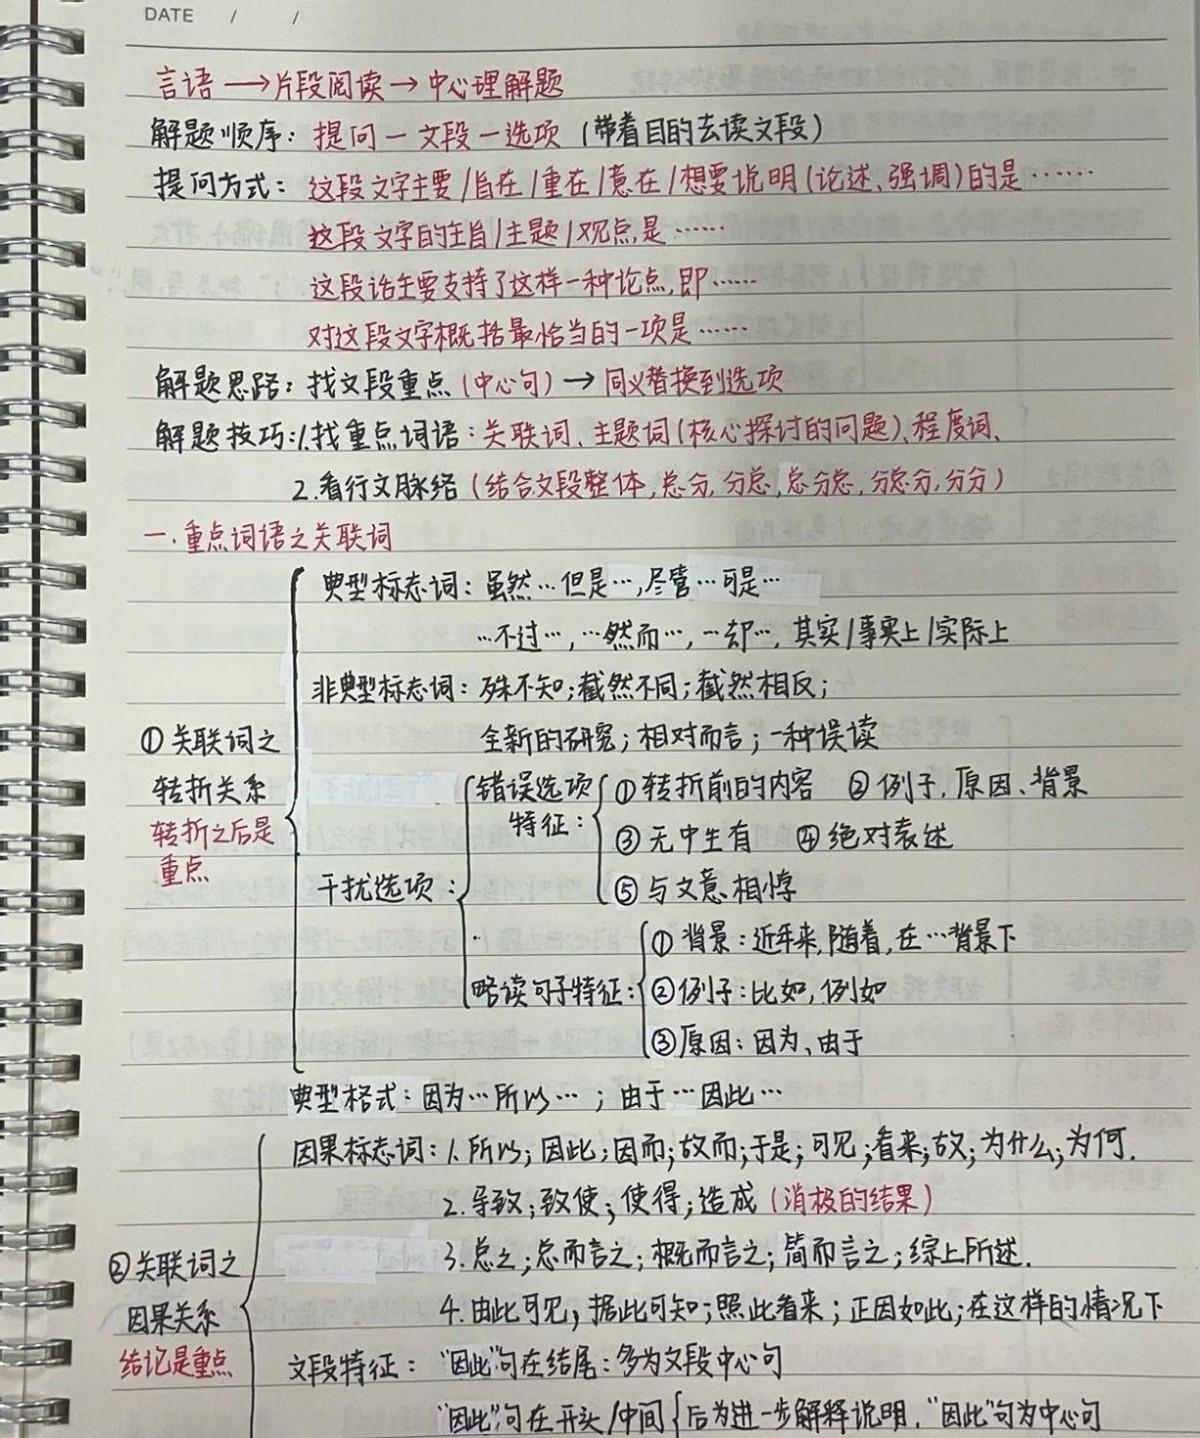 DATE / /
言语→片段阅读→中心理解题
解题顺序：提问一文段一选项（带着目的去读文段）
提问方式：这段文字主要/旨在/重在/意在/想要说明(论述、强调)的是……
这段文字的主旨/主题/观点是……
这段话主要支持了这样一种论点,即……
对这段文字概括最恰当的一项是……
解题思路：找文段重点(中心句)→同义替换到选项
解题技巧：1.找重点词语：关联词、主题词(核心探讨的问题)、程度词、
2.看行文脉络(结合文段整体,总分,分总,总分总,分总分,分分)
一.重点词语之关联词
典型标志词：虽然…但是…,尽管…可是…
…不过…,…然而…,…却…,其实/事实上/实际上
非典型标志词：殊不知;截然不同;截然相反;
①关联词之
全新的研究;相对而言;一种误读
转折关系
错误选项
①转折前的内容 ②例子、原因、背景
转折之后是
特征：
③无中生有 ④绝对表述
重点
干扰选项：
⑤与文意相悖
①背景：近年来,随着,在…背景下
略读句子特征：
②例子：比如,例如
③原因：因为、由于
典型格式：因为…所以…；由于…因此…
因果标志词：1.所以;因此;因而;故而;于是;可见;看来;故;为什么;为何.
2.导致;致使;使得;造成(消极的结果)
②关联词之
3.总之;总而言之;概而言之;简而言之;综上所述.
因果关系
4.由此可见,据此可知;照此看来;正因如此;在这样的情况下
结论是重点
文段特征：“因此”句在结尾：多为文段中心句
“因此”句在开头/中间 后为进一步解释说明,“因此”句为中心句